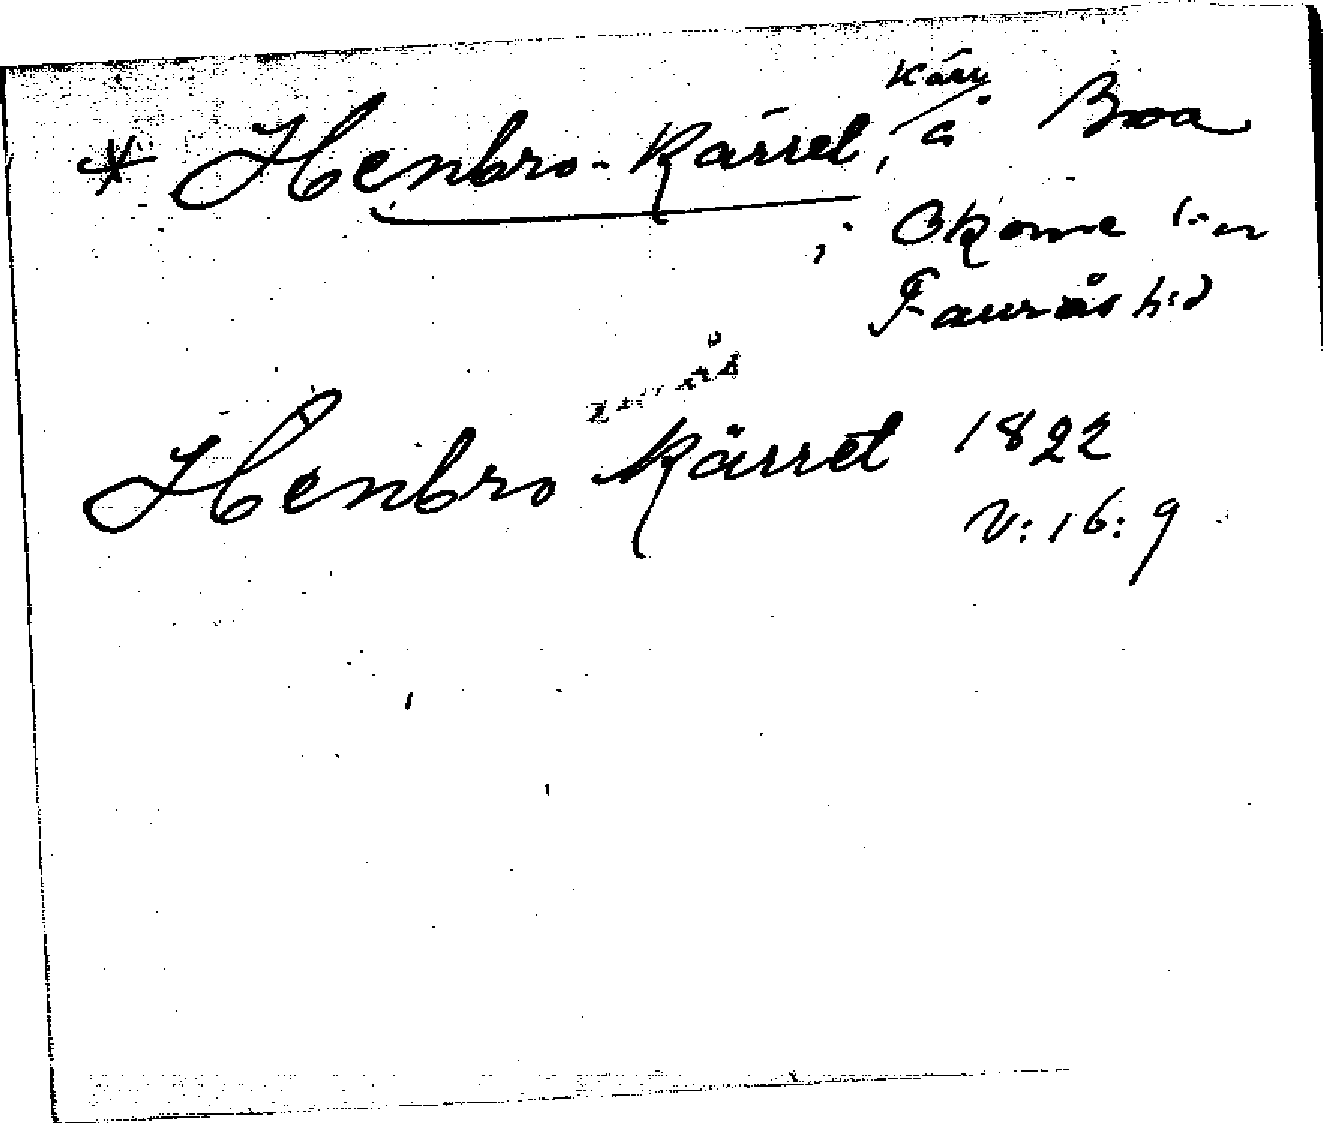 * Henbro-kärret, kärr å Boa
i Okome s-n
Faurås h:d
Henbro kärret 1822
V:16:9